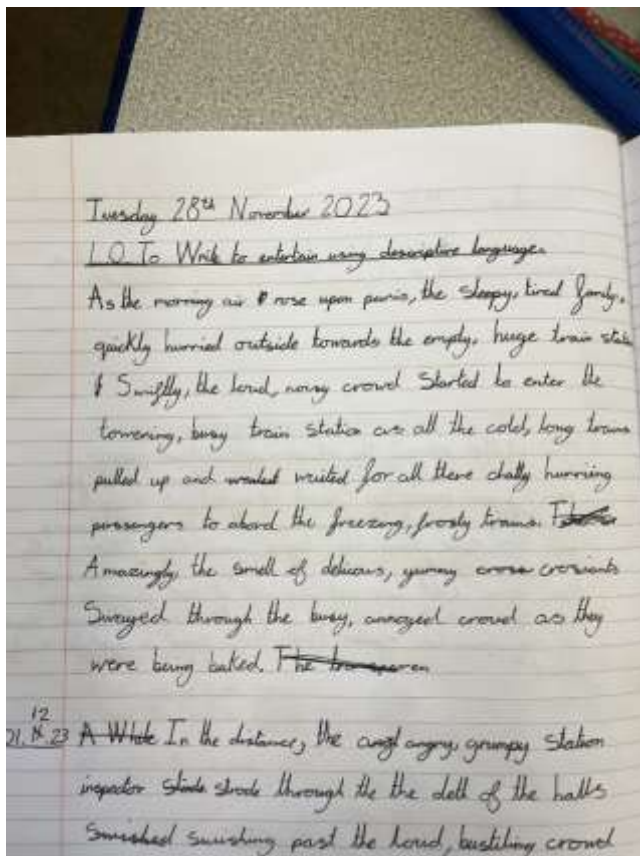 Tuesday 28th November 2023
L.O To Write to entertain using descriptive language.
As the morning air rose upon paris, the sleepy, tired family,
quickly hurried outside towards the empty, huge train
Swiftly, the loud, noisy crowd started to enter the
towering, busy train station as all the cold, long trains
pulled up and waited for all there chatty hurriing
passengers to abord the freezing, frosty trains.
Amazingly, the smell of delicous, yummy crosiants
Swayed through the busy, annoyed crowd as they
were being baked. The
12
21. 23 A While In the distance, the angry, grumpy station
inspector strode through the the of the halls
swishing past the loud, bustiling crowd